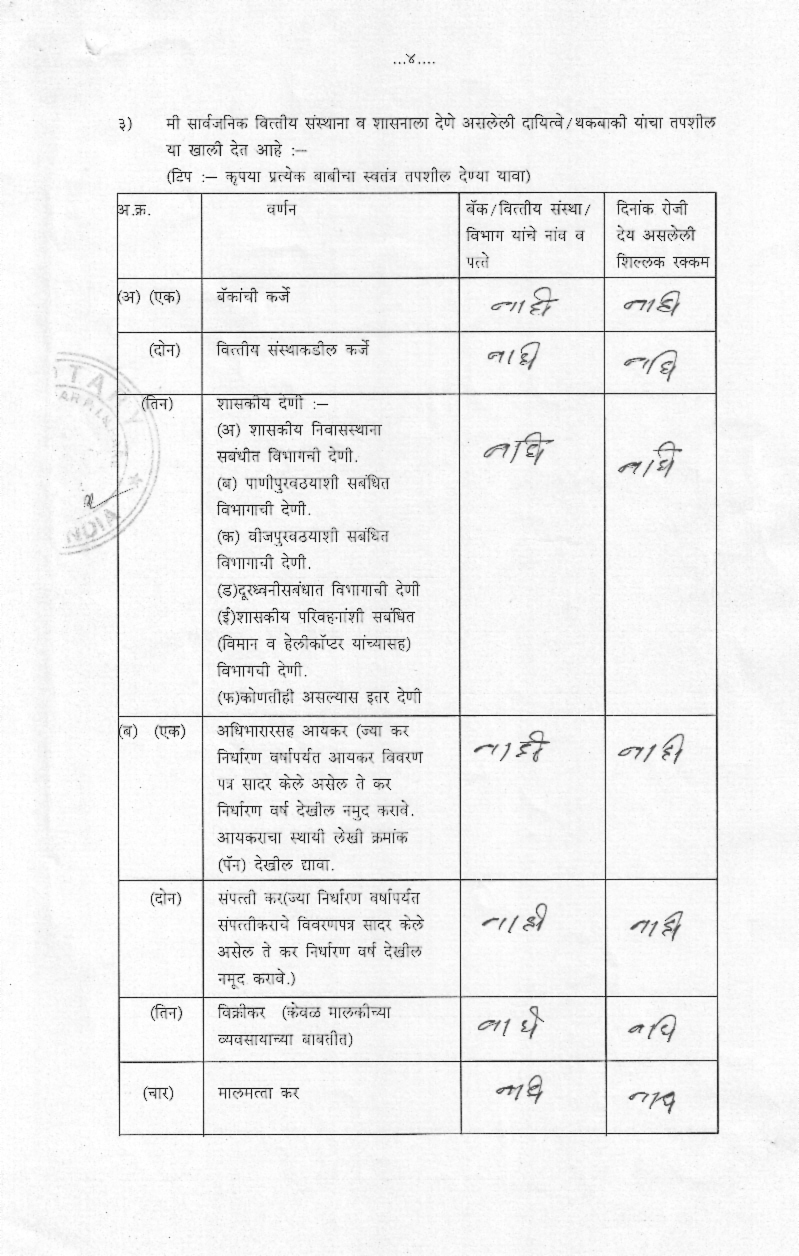 ...४....
३) मी सार्वजनिक वित्तीय संस्थाना व शासनाला देणे असलेली दायित्वे/थकबाकी यांचा तपशील
या खाली देत आहे :–
(टिप :– कृपया प्रत्येक बाबीचा स्वतंत्र तपशील देण्या यावा)
अ.क्र. वर्णन बॅक/वित्तीय संस्था/ दिनांक रोजी
विभाग यांचे नांव व देय असलेली
पत्ते शिल्लक रक्कम
(अ) (एक) बॅकांची कर्जे नाही नाही
(दोन) वित्तीय संस्थाकडील कर्जे नाही नाही
(तिन) शासकीय देणी :–
(अ) शासकीय निवासस्थाना
सबंधीत विभागची देणी. नाही नाही
(ब) पाणीपुरवठयाशी सबंधित
विभागाची देणी.
(क) वीजपुरवठयाशी सबंधित
विभागाची देणी.
(ड)दूरध्वनीसबंधात विभागाची देणी
(ई)शासकीय परिवहनांशी सबंधित
(विमान व हेलीकॉप्टर यांच्यासह)
विभागची देणी.
(फ)कोणतीही असल्यास इतर देणी
(ब) (एक) अधिभारारसह आयकर (ज्या कर नाही नाही
निर्धारण वर्षापर्यत आयकर विवरण
पत्र सादर केले असेल ते कर
निर्धारण वर्ष देखील नमुद करावे.
आयकराचा स्थायी लेखी क्रमांक
(पॅन) देखील द्यावा.
(दोन) संपत्ती कर(ज्या निर्धारण वर्षापर्यत
संपत्तीकराचे विवरणपत्र सादर केले नाही नाही
असेल ते कर निर्धारण वर्ष देखील
नमूद करावे.)
(तिन) विक्रीकर (केवळ मालकीच्या नाही नाही
व्यवसायाच्या बाबतीत)
(चार) मालमत्ता कर नाही नाही